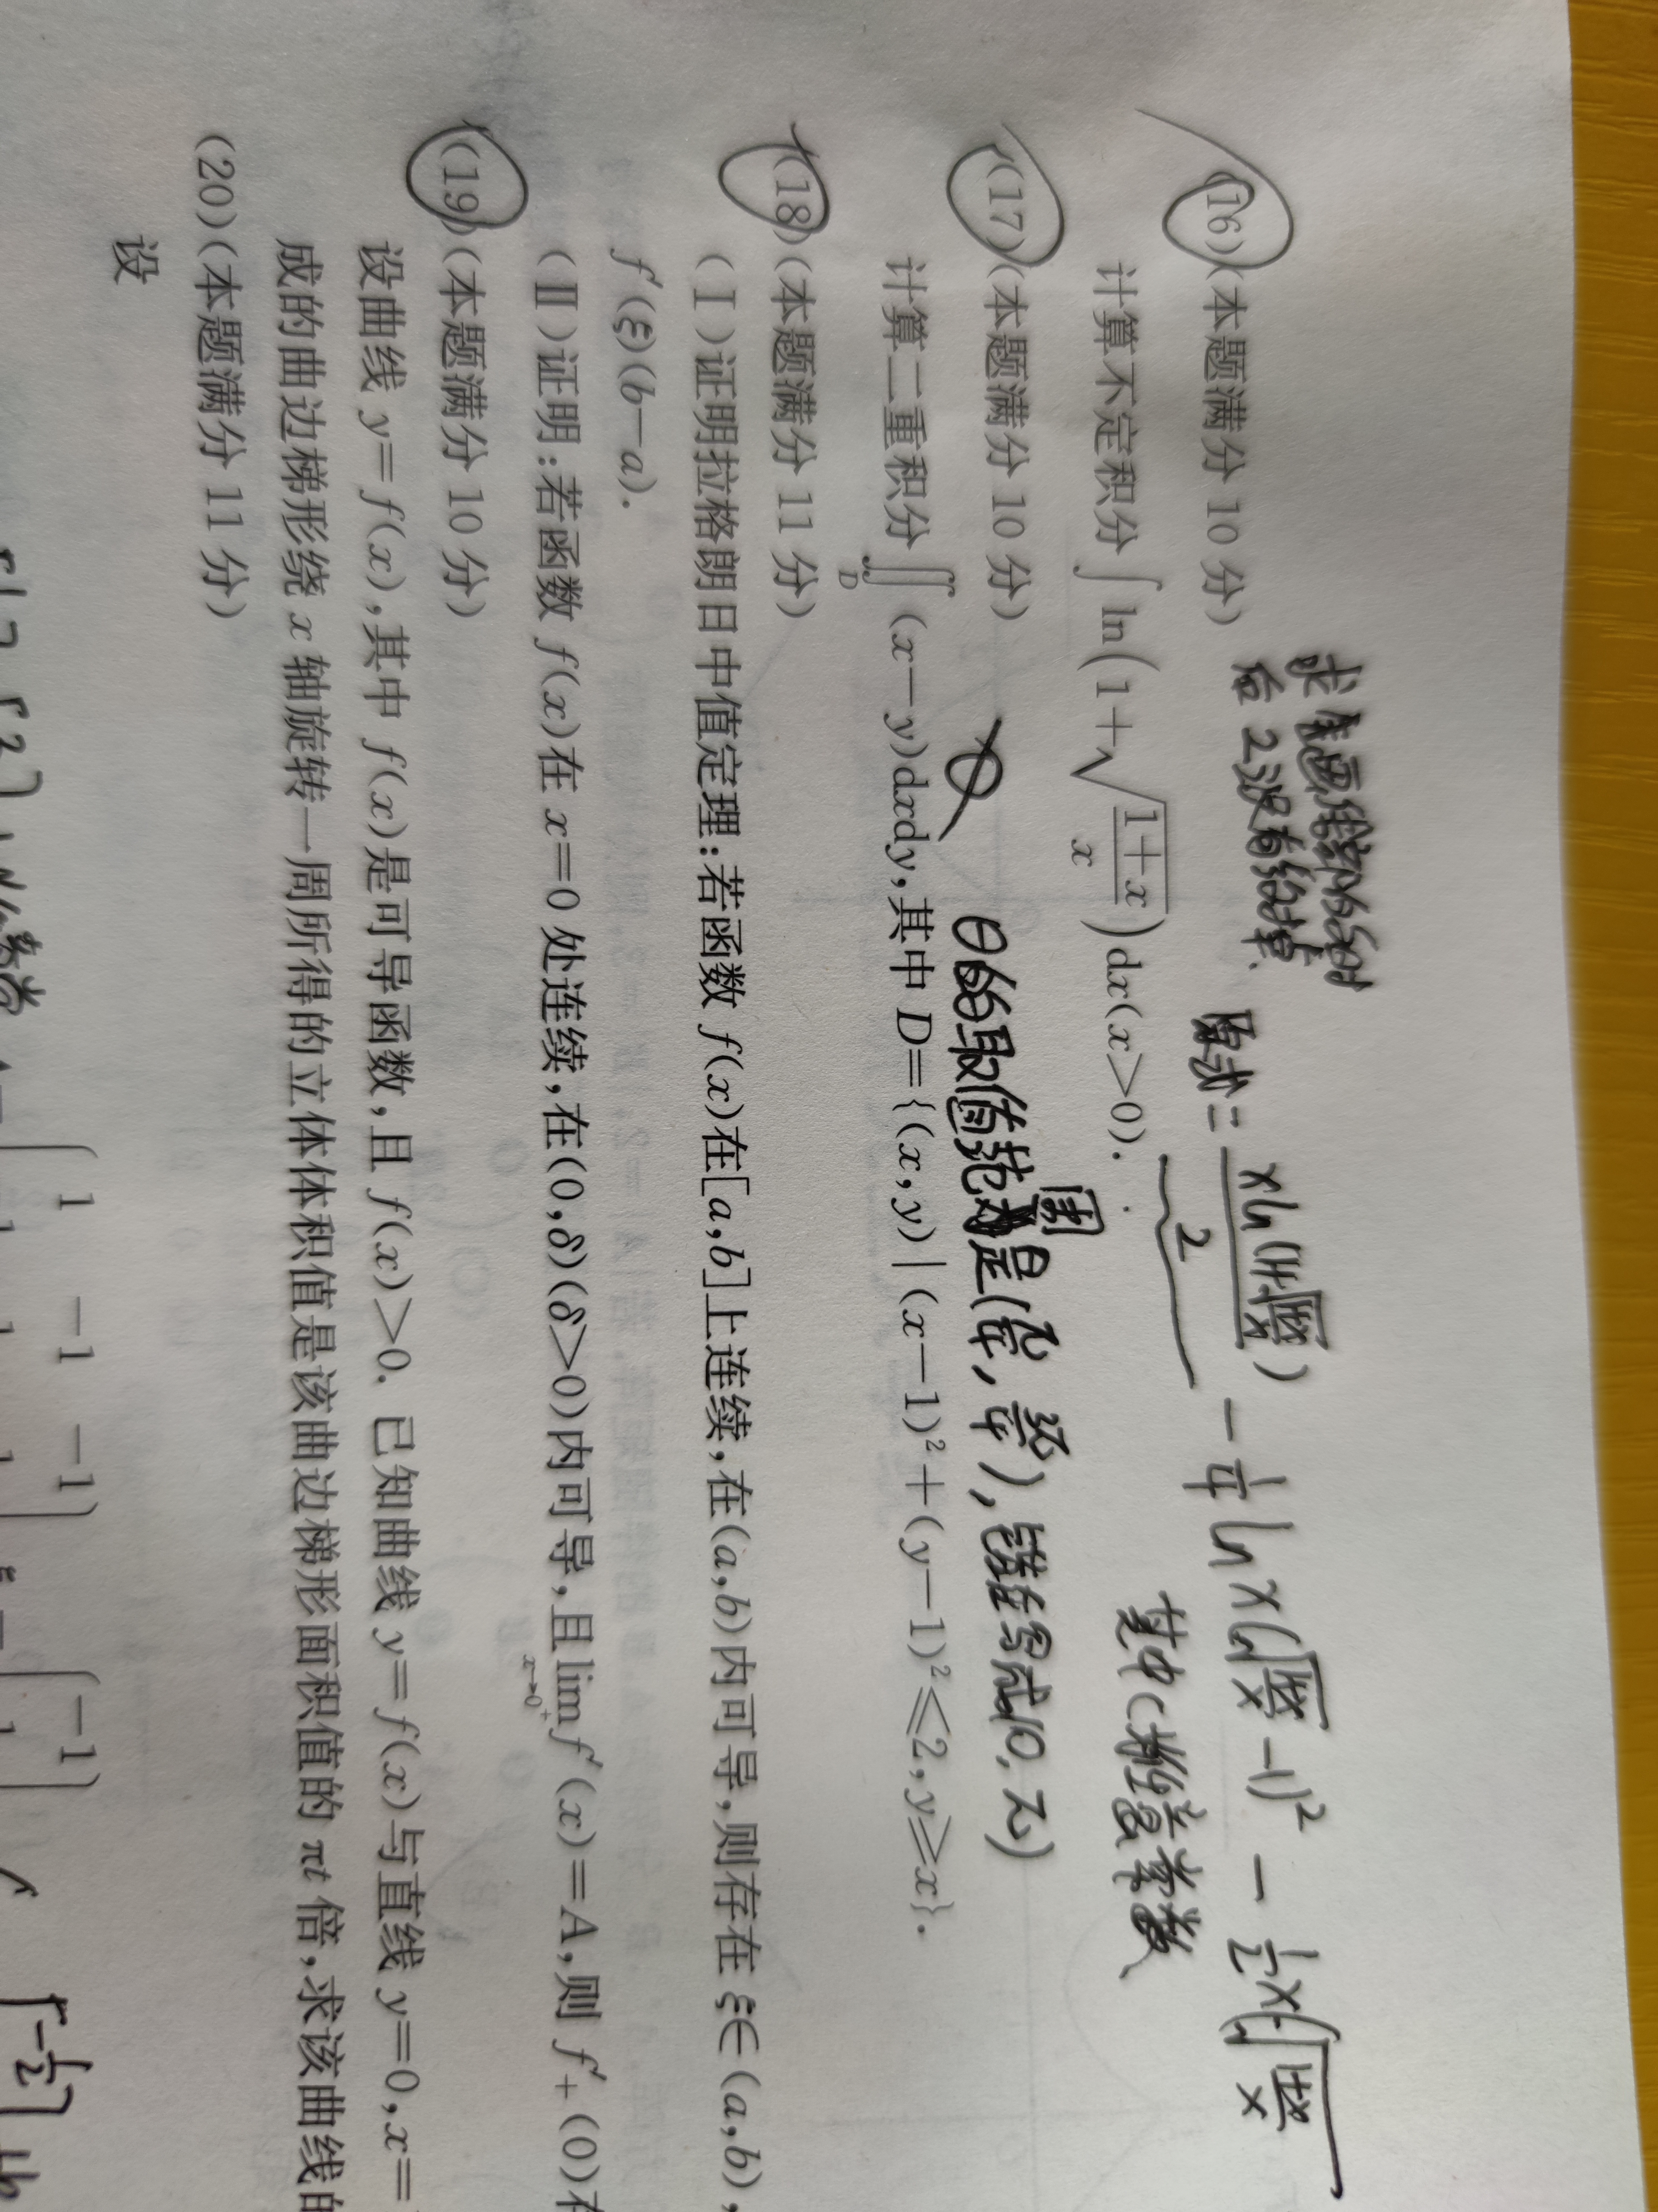 (16)(本题满分 10 分)
求
后 2没有
原式= xln(1+√(1+x)/x) / 2 − 1/4 ln x(√(1+x)/x −1)² − 1/2 x(√(1+x)/x
计算不定积分∫ln(1+√((1+x)/x))dx(x>0).
2
其中
(17)(本题满分 10 分)
θ的取值范围是(π/4, 3π/4),错写成(0,π)
计算二重积分∬(x−y)dxdy,其中 D={(x,y)|(x−1)²+(y−1)²≤2,y≥x}.
D
(18)(本题满分 11 分)
(Ⅰ)证明拉格朗日中值定理:若函数 f(x)在[a,b]上连续,在(a,b)内可导,则存在 ξ∈(a,b),
f′(ξ)(b−a).
(Ⅱ)证明:若函数 f(x)在 x=0 处连续,在(0,δ)(δ>0)内可导,且lim f′(x)=A,则 f′₊(0)存
x→0⁺
(19)(本题满分 10 分)
设曲线 y=f(x),其中 f(x)是可导函数,且 f(x)>0. 已知曲线 y=f(x)与直线 y=0,x=
成的曲边梯形绕 x 轴旋转一周所得的立体体积值是该曲边梯形面积值的 πt 倍,求该曲线的
(20)(本题满分 11 分)
设
1 −1 −1
−1